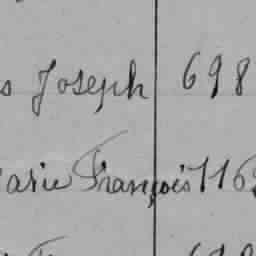 s Joseph 698
arie François 116